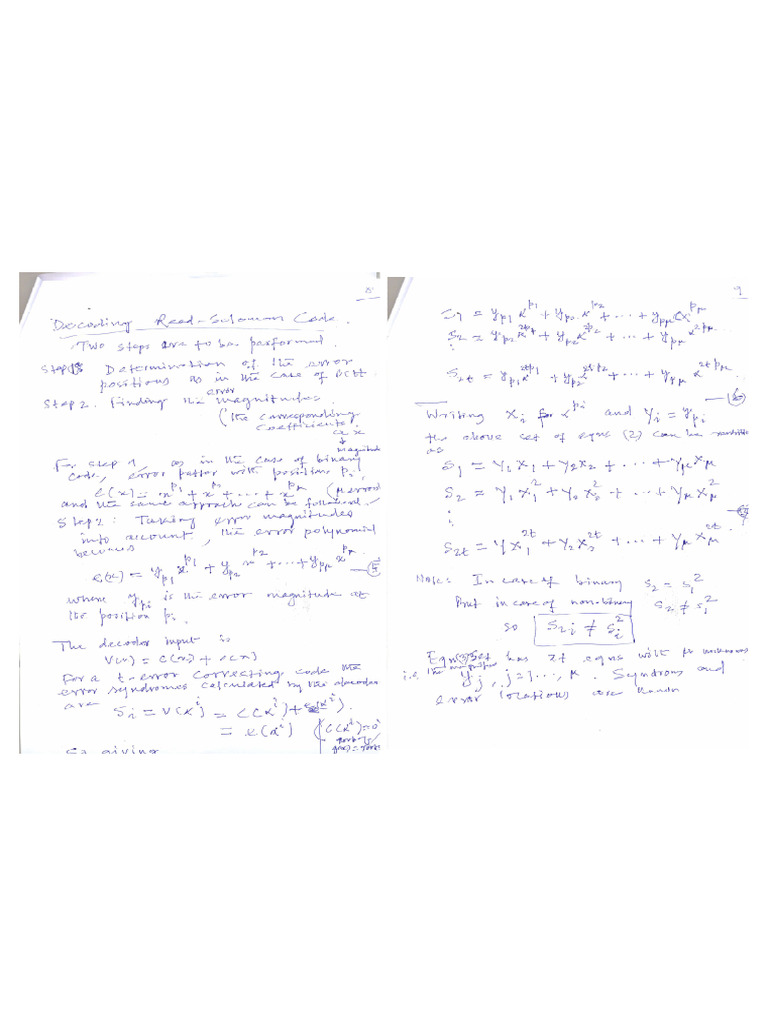 8
Decoding Reed-Solomon Code.
Two steps are to be performed.
Step 1: Determination of the error
positions as in the case of BCH
Step 2. Finding the error magnitudes
(the corresponding
coefficients)
magnitude
For step 1, as in the case of binary
code, error patter with positions pi
e(x) = x^p1 + x^p2 + ... + x^pμ (μ error)
and the same approach can be followed.
Step 2: Taking error magnitudes
into account, the error polynomial
becomes
e(x) = y_p1 x^p1 + y_p2 x^p2 + ... + y_pμ x^pμ — (5)
where y_pi is the error magnitude at
the position pi
The decoder input is
V(x) = C(x) + e(x)
For a t-error correcting code the
error syndromes calculated by the decoder
are
S_i = V(α^i) = C(α^i) + e(α^i).
= e(α^i) (C(α^i) = 0
So giving
9
S1 = y_p1 α^p1 + y_p2 α^p2 + ... + y_pμ α^pμ
S2 = y_p1 α^2p1 + y_p2 α^2p2 + ... + y_pμ α^2pμ
⋮
S2t = y_p1 α^2tp1 + y_p2 α^2tp2 + ... + y_pμ α^2tpμ
— (6)
Writing X_i for α^pi and Y_i = y_pi
the above set of eqns (2) can be
as
S1 = Y1 X1 + Y2 X2 + ... + Yμ Xμ
S2 = Y1 X1^2 + Y2 X2^2 + ... + Yμ Xμ^2
⋮
S2t = Y X1^2t + Y2 X2^2t + ... + Yμ Xμ^2t
— (7)
Note: In case of binary S2 = S1^2
But in case of non-binary S2 ≠ S1^2
so S2i ≠ Si^2
Eqn set has 2t eqns with μ unknowns
i.e. the Yj, j = 1..., μ. Syndroms and
error locations are known